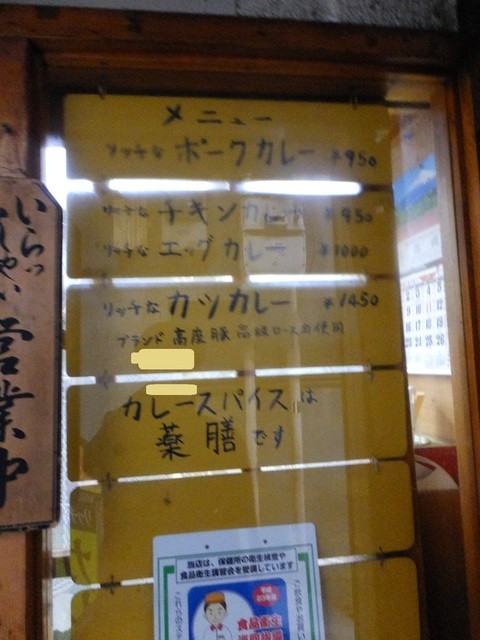 メニュー
リッチな ポークカレー ¥950
リッチな チキンカレー ¥950
リッチな エッグカレー ¥1000
リッチな カツカレー ¥1450
ブランド 高座豚 高級ロース肉使用
カレースパイスは
薬膳です
いらっしゃい
営業中
当店は、保健所の衛生検査や
食品衛生講習会を受講しています
食品衛生